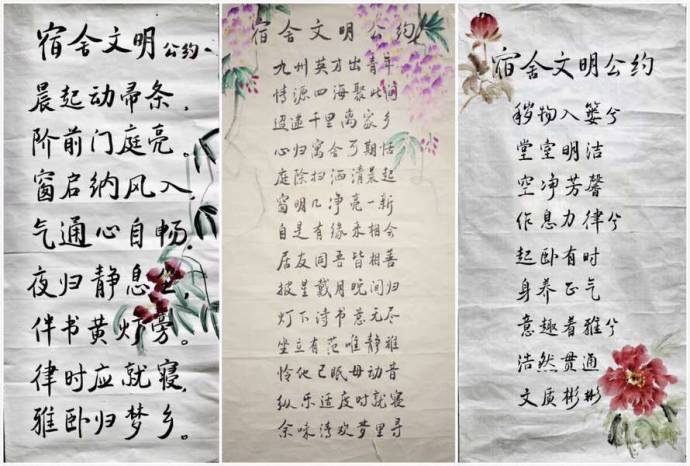 宿舍文明公约
晨起动帚条，
阶前门庭亮。
窗启纳风入，
气通心自畅。
夜归静息
伴书黄灯旁。
律时应就寝，
雅卧归梦乡。
宿舍文明公约
九州英才出青年
情源四海聚此间
迢递千里离家乡
心归寓舍可期恬
庭除扫洒清晨起
窗明几净亮一新
自是有缘来相会
居友同吾皆相善
披星戴月晚间归
灯下诗书意无尽
坐立有范唯静雅
怜他已眠毋动音
纵乐适度时就寝
余味清欢梦里寻
宿舍文明公约
秽物入篓兮
堂室明洁
空净芳馨
作息力律兮
起卧有时
身养正气
意趣着雅兮
浩然贯通
文质彬彬